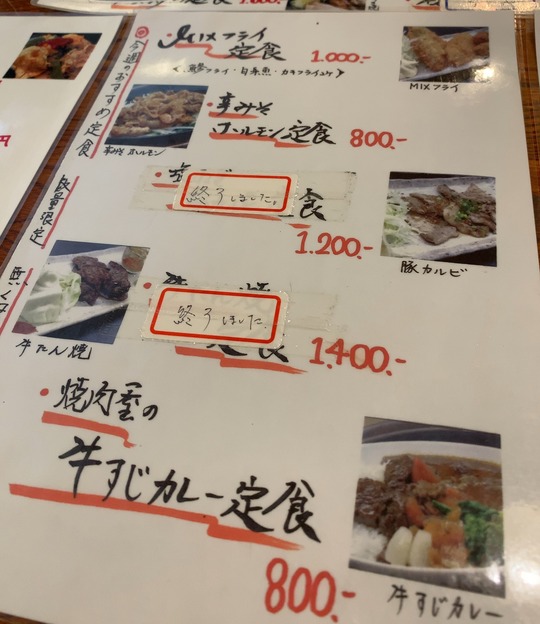 今週のおすすめ定食
・MIXフライ
定食 1.000.-
MIXフライ
・辛みそ
ホルモン定食 800.-
辛みそホルモン
数量限定
終了しました。
食
1.200.-
豚カルビ
終了しました。
定食 1.400.-
牛たん焼
・焼肉屋の
牛すじカレー定食
800.-
牛すじカレー
円